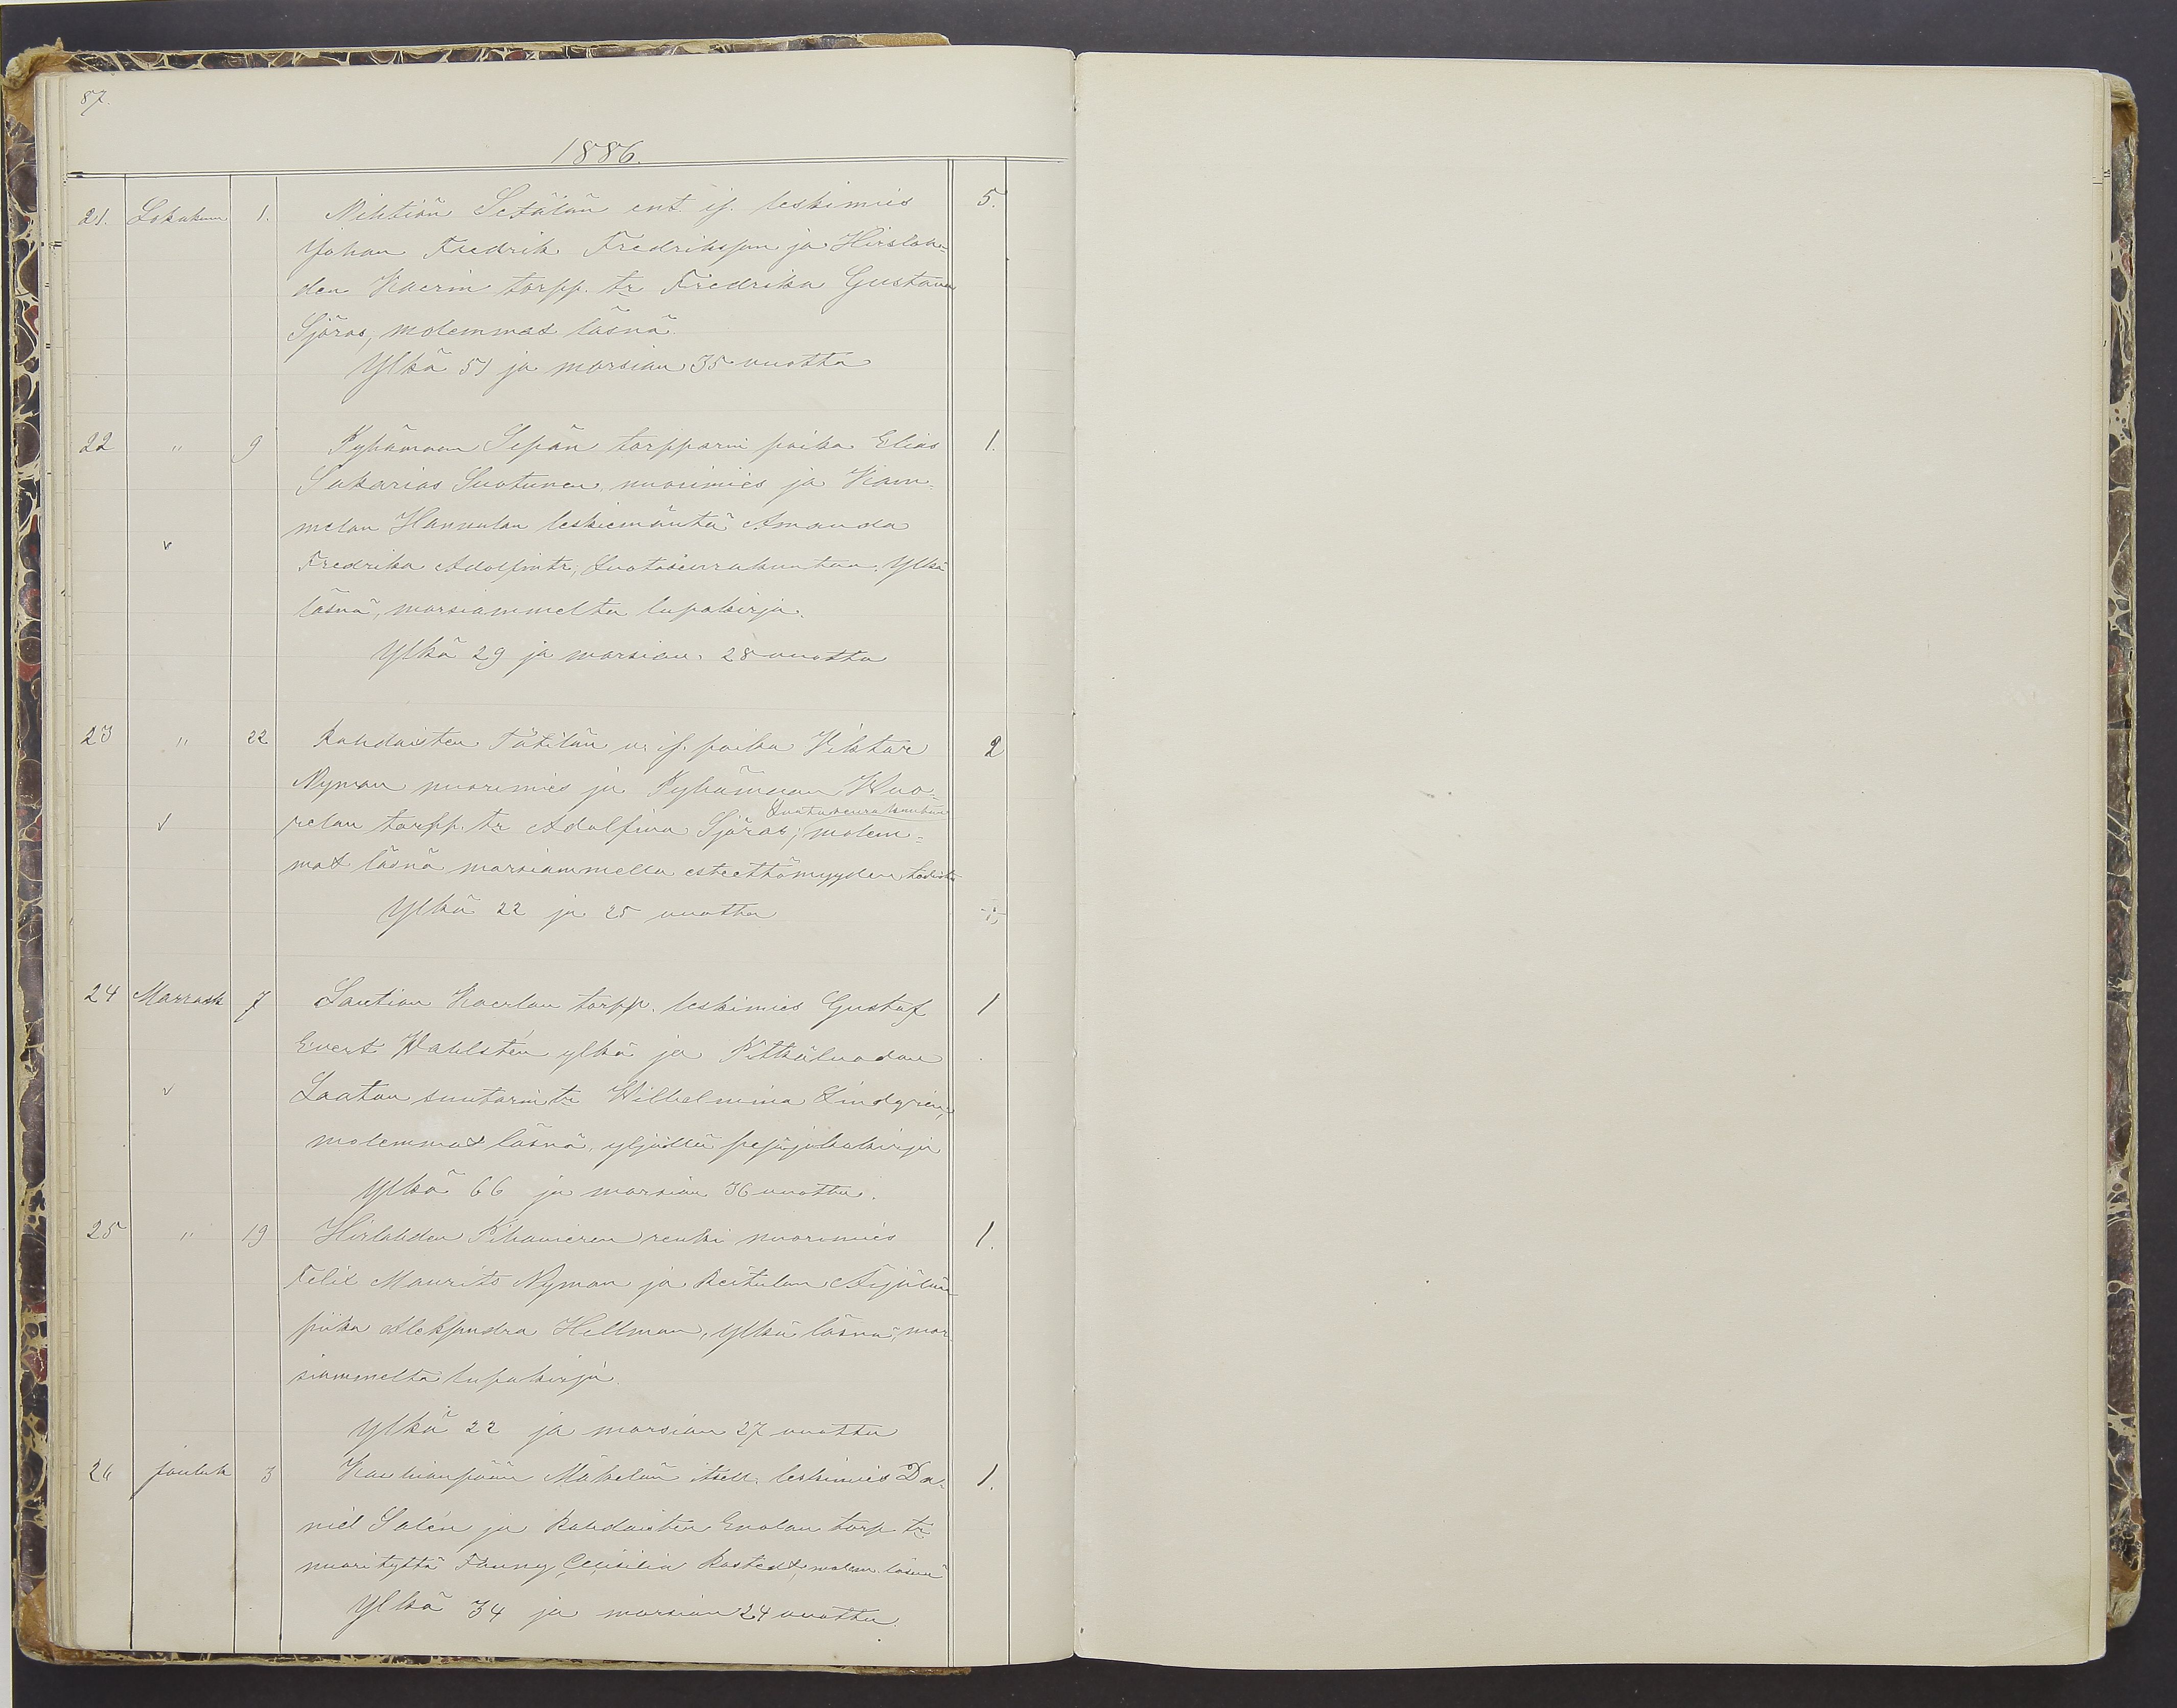 87.
1886.
21. Lokakuun 1. Nihtiön Setälän ent. is. leskimies 5.
Johan Fredrik Fredriksson ja Hirslah-
den Kaerin torpp. tr Fredrika Gustava
Sjöros, molemmat läsnä.
Ylkä 51 ja morsian 35 vuotta
22 " 9 Pyhämaan Sepän torpparin poika Elias 1.
Sakarias Suotunen, nuorimies ja Kam-
melan Hannulan leskiemäntä Amanda
v
Fredrika Adolfintr, Luotoseurakuntaa. Ylkä
läsnä, morsiammelta lupakirja.
Ylkä 29 ja morsian 28 vuotta
23 " 22 Rahdaisten Tätilän is. poika Viktor 2
Nyman nuorimies ja Pyhämaan Wuo-
Luotoseurakuntaa
v relan torpp. tr Adolfina Sjöros; molem-
mat läsnä morsiammella esteettömyyden todistus
Ylkä 22 ja 25 vuotta
24 Marrask 7 Santion Kaerlan torpp. leskimies Gustaf 1
Evert Wahlstén ylkä ja Pitkäluodon
v Laaton suutarin tr Wilhelmina Lindgrén,
molemmat läsnä, yljällä pesäjakokirja
Ylkä 66 ja morsian 36 vuotta.
25 " 19 Hirslahden Pihavieren renki nuorimies 1.
Felix Maurits Nyman ja Reitulan Äijälän
piika Aleksandra Hellman, ylkä läsnä, mor-
siammelta lupakirja.
Ylkä 22 ja morsian 27 vuotta
26 jouluk 3 Kauhianpään Mäkelän itsell. leskimies Da- 1.
niel Salén ja Rahdaisten Enolan torp tr
nuorityttö Fanny Cecilia Rostedt, molem. läsnä
Ylkä 34 ja morsian 24 vuotta.